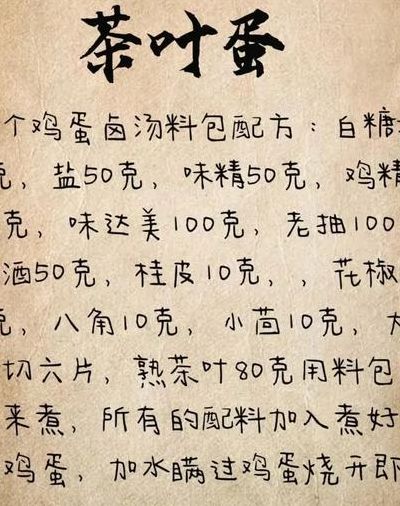 茶叶蛋
个鸡蛋卤汤料包配方：白糖
克，盐50克，味精50克，鸡精
克，味达美100克，老抽100
酒50克，桂皮10克，，花椒
克，八角10克，小茴10克，大
切六片，熟茶叶80克用料包
来煮，所有的配料加入煮好
鸡蛋，加水瞒过鸡蛋烧开即